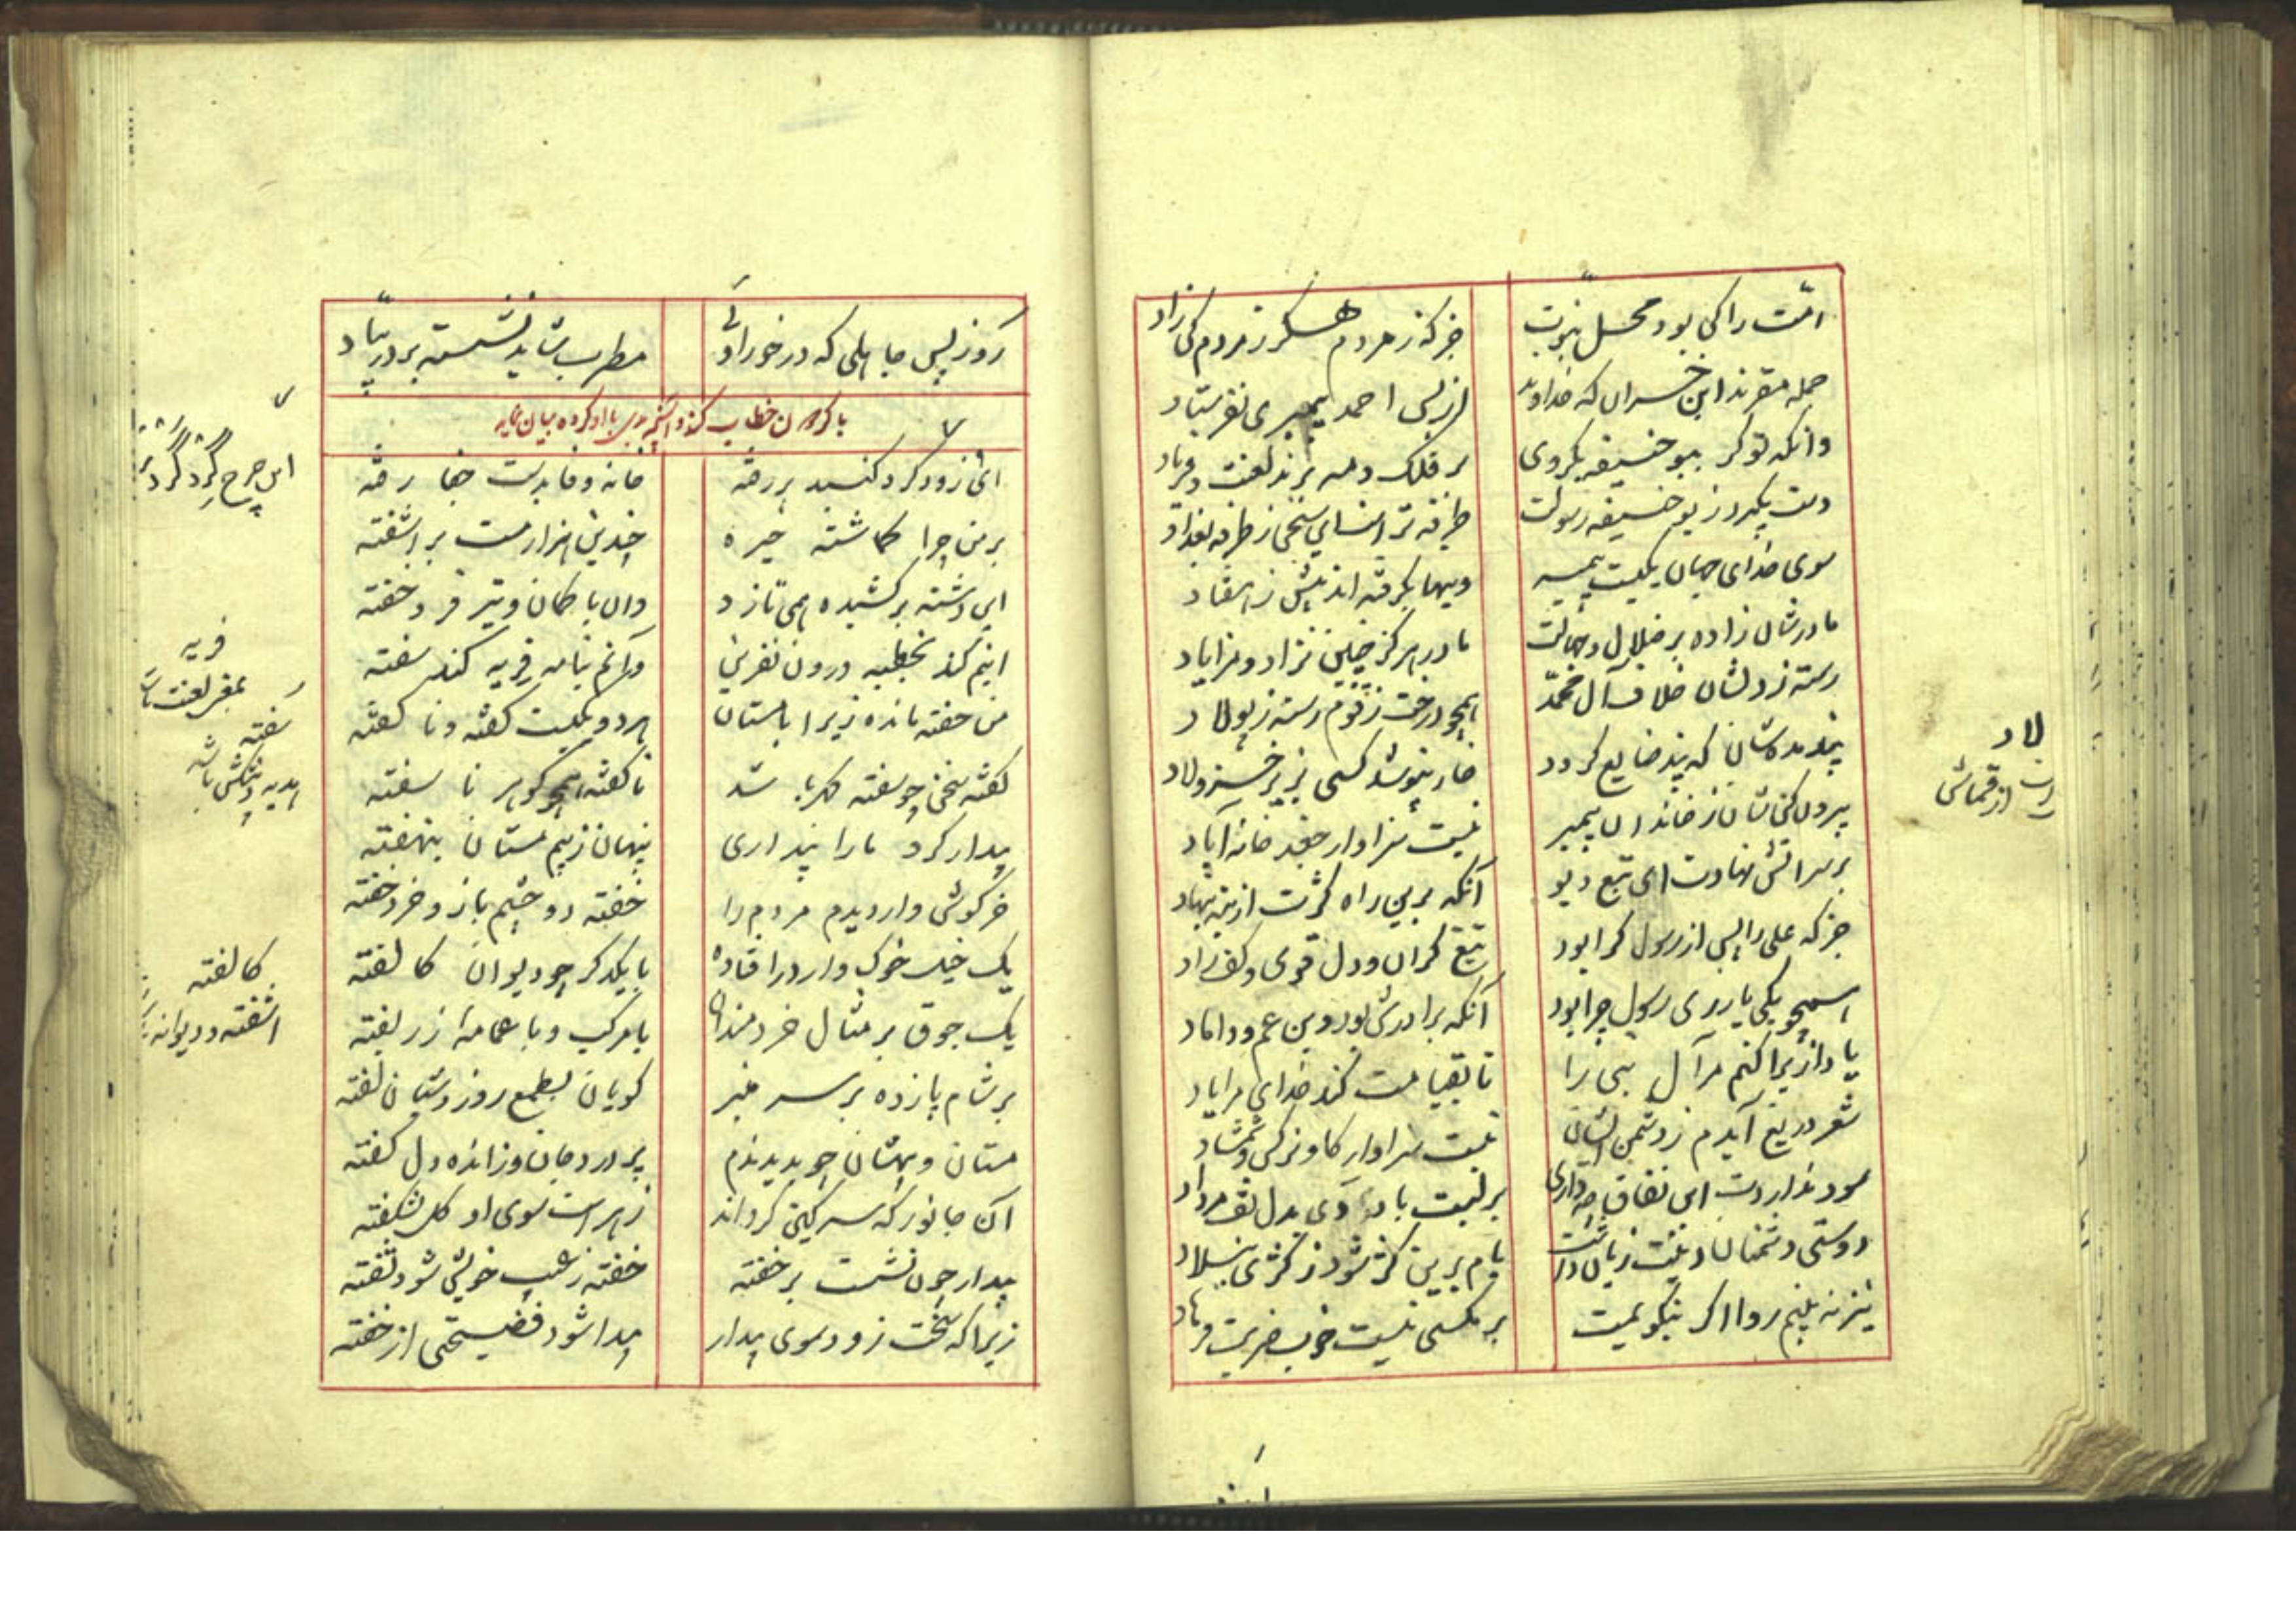 امّت را کی بود محل نبوّت
جز که ز مردم هگرز مردم کی زاد
جمله مقرند این خسران که خداوند
از پس احمد پیمبری نفرستاد
وانکه تو گر بو حنیفه بگروی
بر فلک و مه برند لعنت و فریاد
دست بگیرد ز بو حنیفه رسولت
طرفه تر است این سخن ز طرفه بغداد
سوی خدای جهان یکیست پیمبر
وینها بگرفته اند بیش ز هفتاد
مادرشان زاده بر ضلال و جهالت
مادر هرگز چنین نزاد و مزایاد
رسته ز دلشان خلاف آل محمّد
همچو درخت زقوم رسته ز پولاد
پند مده شان که پند ضایع گردد
خار نپوشد کسی بزیر خز و لاد
بیرون کن شان ز خاندان پیمبر
نیست سزاوار جغد خانه آباد
بر سر آتش نهادت ای تبع دیو
آنکه برین راه کژت از بنه بنهاد
جز که علی را پس از رسول کرا بود
تیغ گران و دل قوی و کف راد
همچو یکی یار زی رسول چرا بود
آنکه برادرش بود و بن عم و داماد
یاد ازیرا کنم مر آل نبی را
تا بقیامت کند خدای مرا یاد
شعر دریغ آیدم ز دشمن ایشان
نیست سزاوار گاو نرگس و شمشاد
سود نداردت این نفاق چه داری
بر لبت باد دی بدل تف مرداد
دوستی دشمنان دینت زیان داشت
بام برین کژ شود ز کژی بنلاد
نیز نه بینم روا اگر بنکوهمت
بر مگسی نیست خوب ضربت فرهاد
روز پس جاهلی که درخور اوئی
مطرب شاید نشسته بر در بیاد
با کردون خطاب کند و آنچه بدی با او کرده بیان نماید
ای زود گرد گنبد بر رفته
خانه وفا بدست جفا رفته
بر من چرا گماشته خیره
چندین هزار مست بر آشفته
این دشنه بر کشیده همی تازد
وان با کمان و تیر فرو خفته
اینم کند بخطبه درون نفرین
وآنم بنامه فریه کند سفته
من خفته مانده زیرا با مستان
هر دو یکیست گفته و نا گفته
گفته سخن چو سفته گهر باشد
ناگفته همچو گوهر نا سفته
بیدار کرد ما را بیداری
پنهان ز بیم مستان بنهفته
خرگوش وار دیدم مردم را
خفته دو چشم باز و خرد خفته
یک خیل خوک وار درافتاده
با یکدگر چو دیوان کالفته
یک جوق بر مثال خردمندان
با مرکب و با عمامه زر بفته
بر شام پازده بر سر منبر
گویان بطمع روز و شبان لفته
مستان و بیهشان چو بدیدندم
پر درد جان و ز انده دل کفته
آن جانور که سرگین گرداند
زهر است سوی او گل بشکفته
بیدار چون نشست بر خفته
خفته ز عیب خویش شود تفته
زیرا که سخت زود سوی بیدار
پیدا شود فضیحتی از خفته
لاد
از قماش
این چرخ گرد گرد
فریه
بمعنی لعنت است
سفته
هدیه و پیشکش باشد
کالفته
آشفته و دیوانه